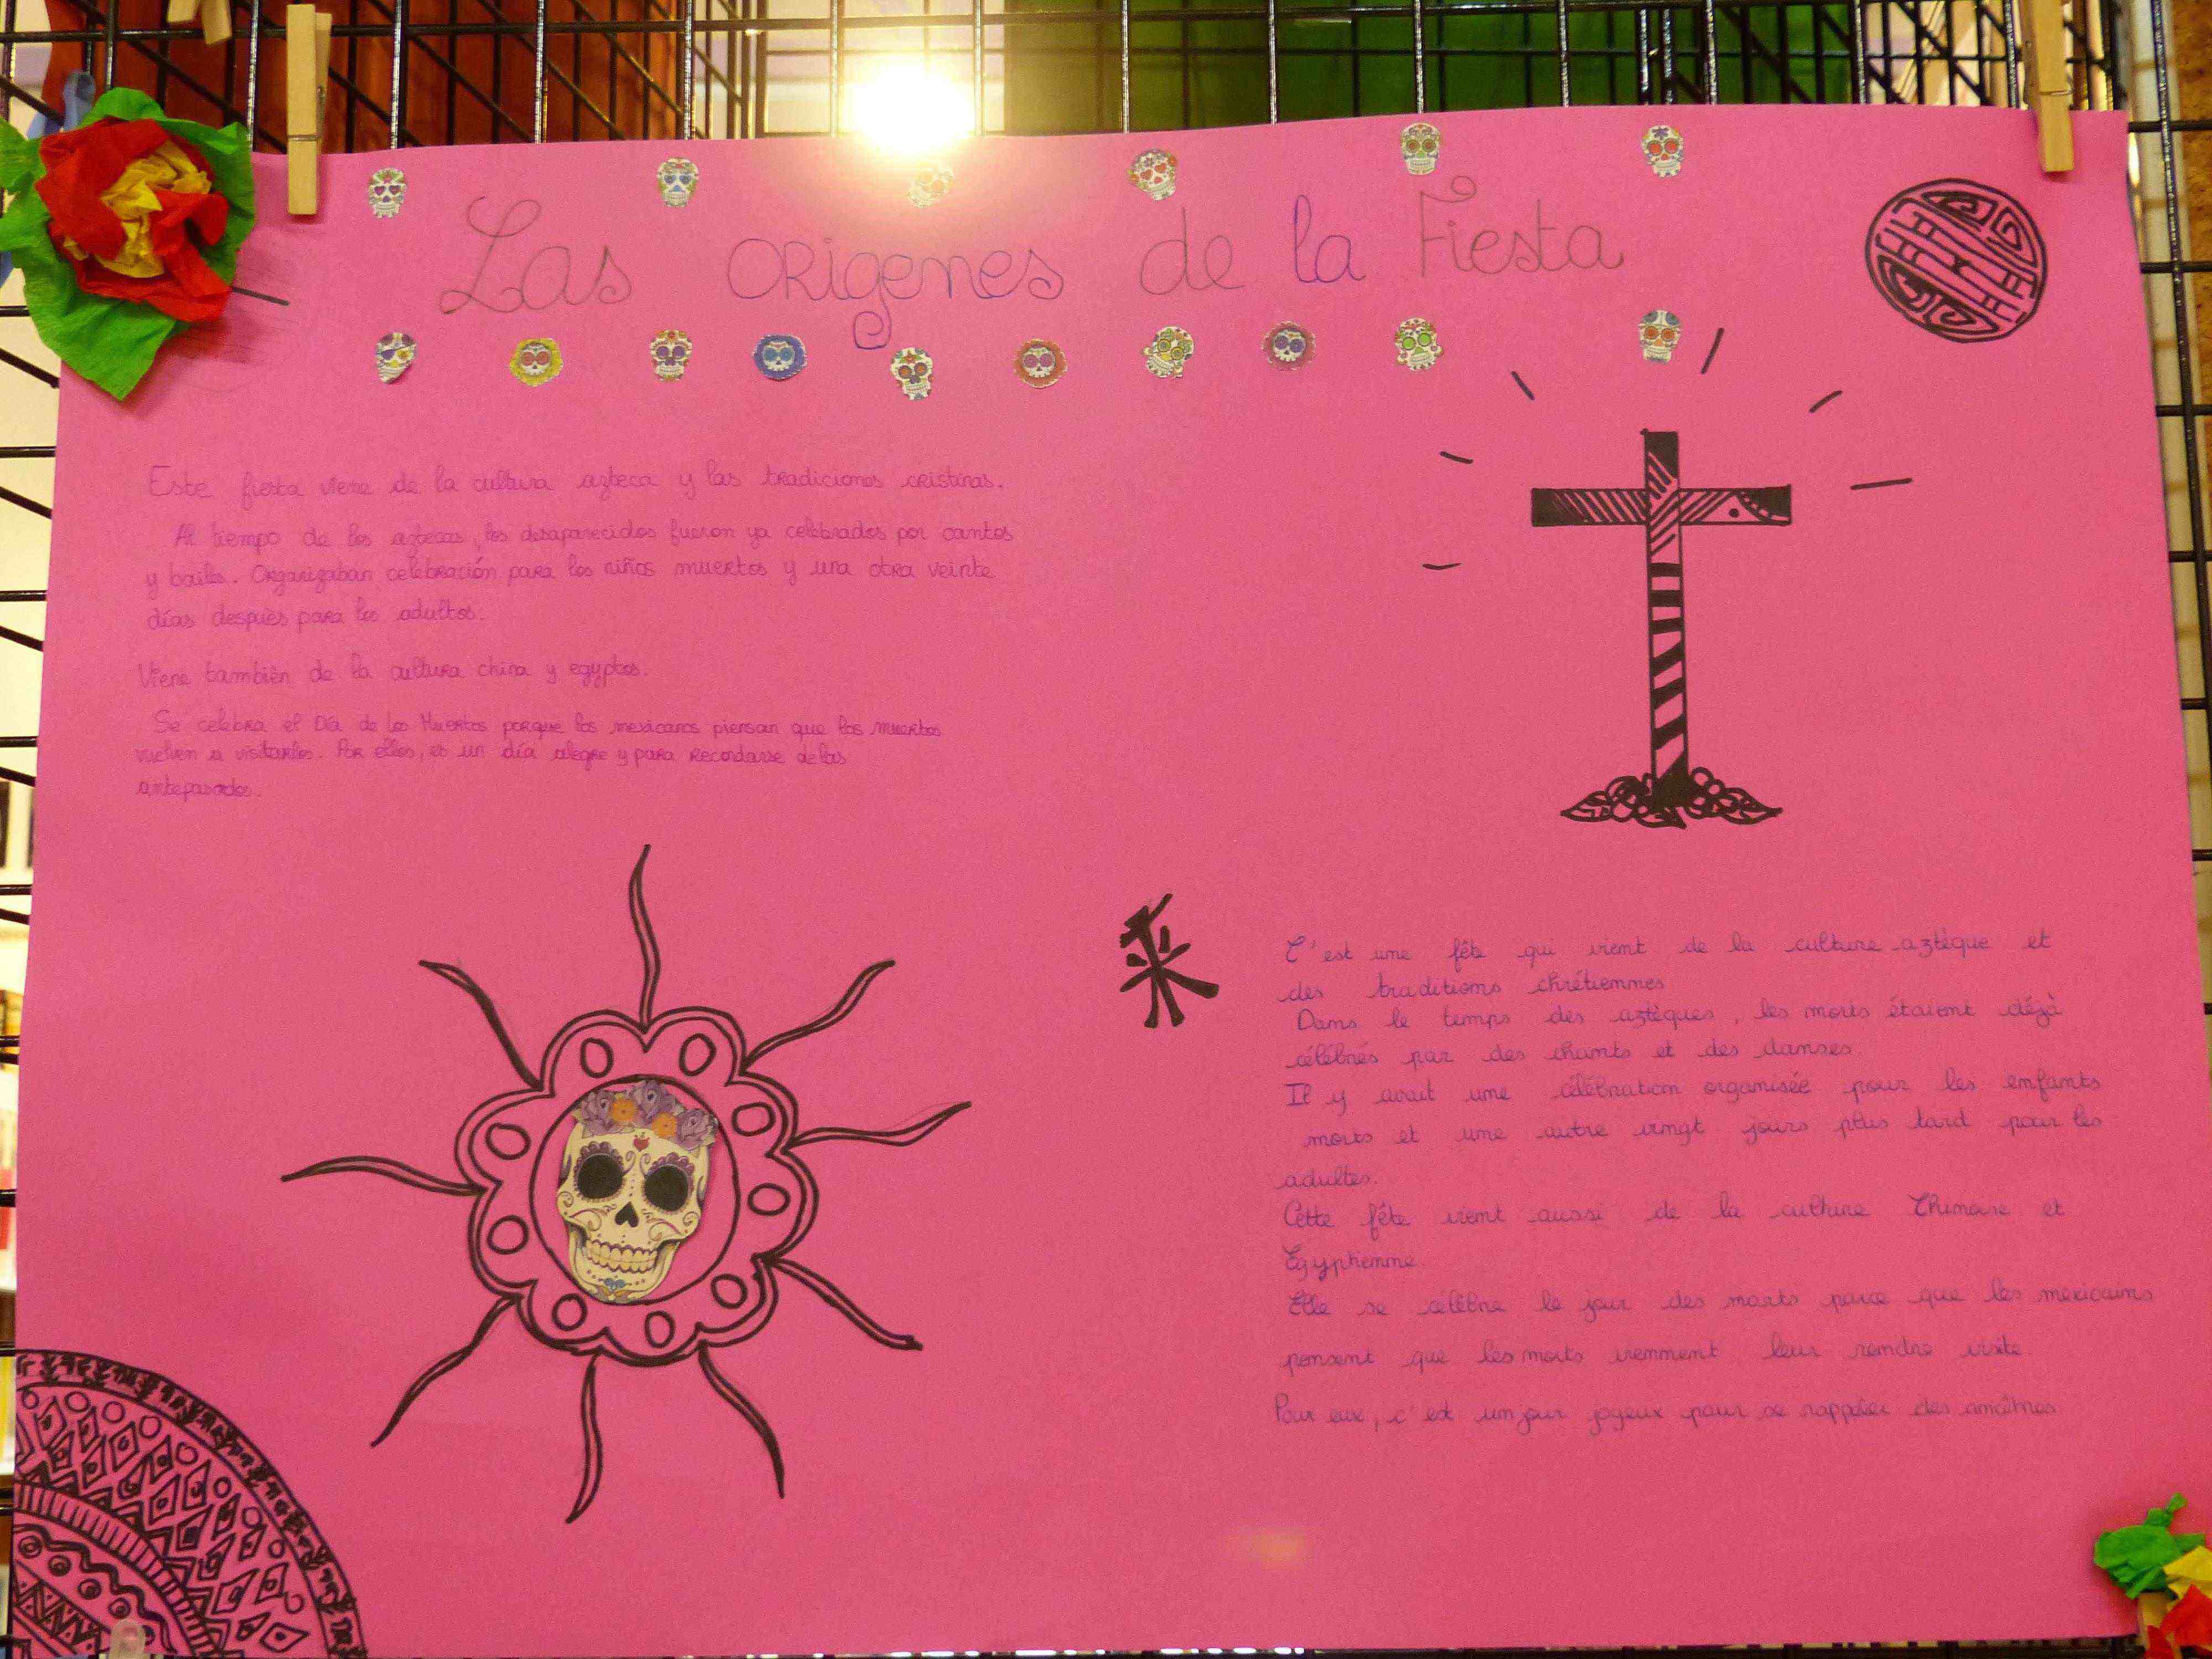 Las origenes de la Fiesta
Este fiesta viene de la cultura azteca y las tradiciones cristinas.
Al tiempo de los aztecas, los desaparecidos fueron ya celebrados por cantos
y bailes. Organizaban celebración para los niños muertos y una otra veinte
días despuès para los adultos.
Viene tambièn de la cultura china y egyptos.
Se celebra el Día de los Muertos porque los mexicanos piensan que los muertos
vuelven a visitarles. Por ellos, es un día alegre y para recordarse de las
antepasados.
采
C'est une fête qui vient de la culture aztèque et
des traditions chrétiennes
Dans le temps des aztèques, les morts étaient déjà
célébrés par des chants et des danses.
Il y avait une célébration organisée pour les enfants
morts et une autre vingt jours plus tard pour les
adultes.
Cette fête vient aussi de la culture Chinoise et
Egyptienne.
Elle se célèbre le jour des morts parce que les mexicains
pensent que les morts viennent leur rendre visite.
Pour eux, c'est un jour joyeux pour se rappeler des ancêtres